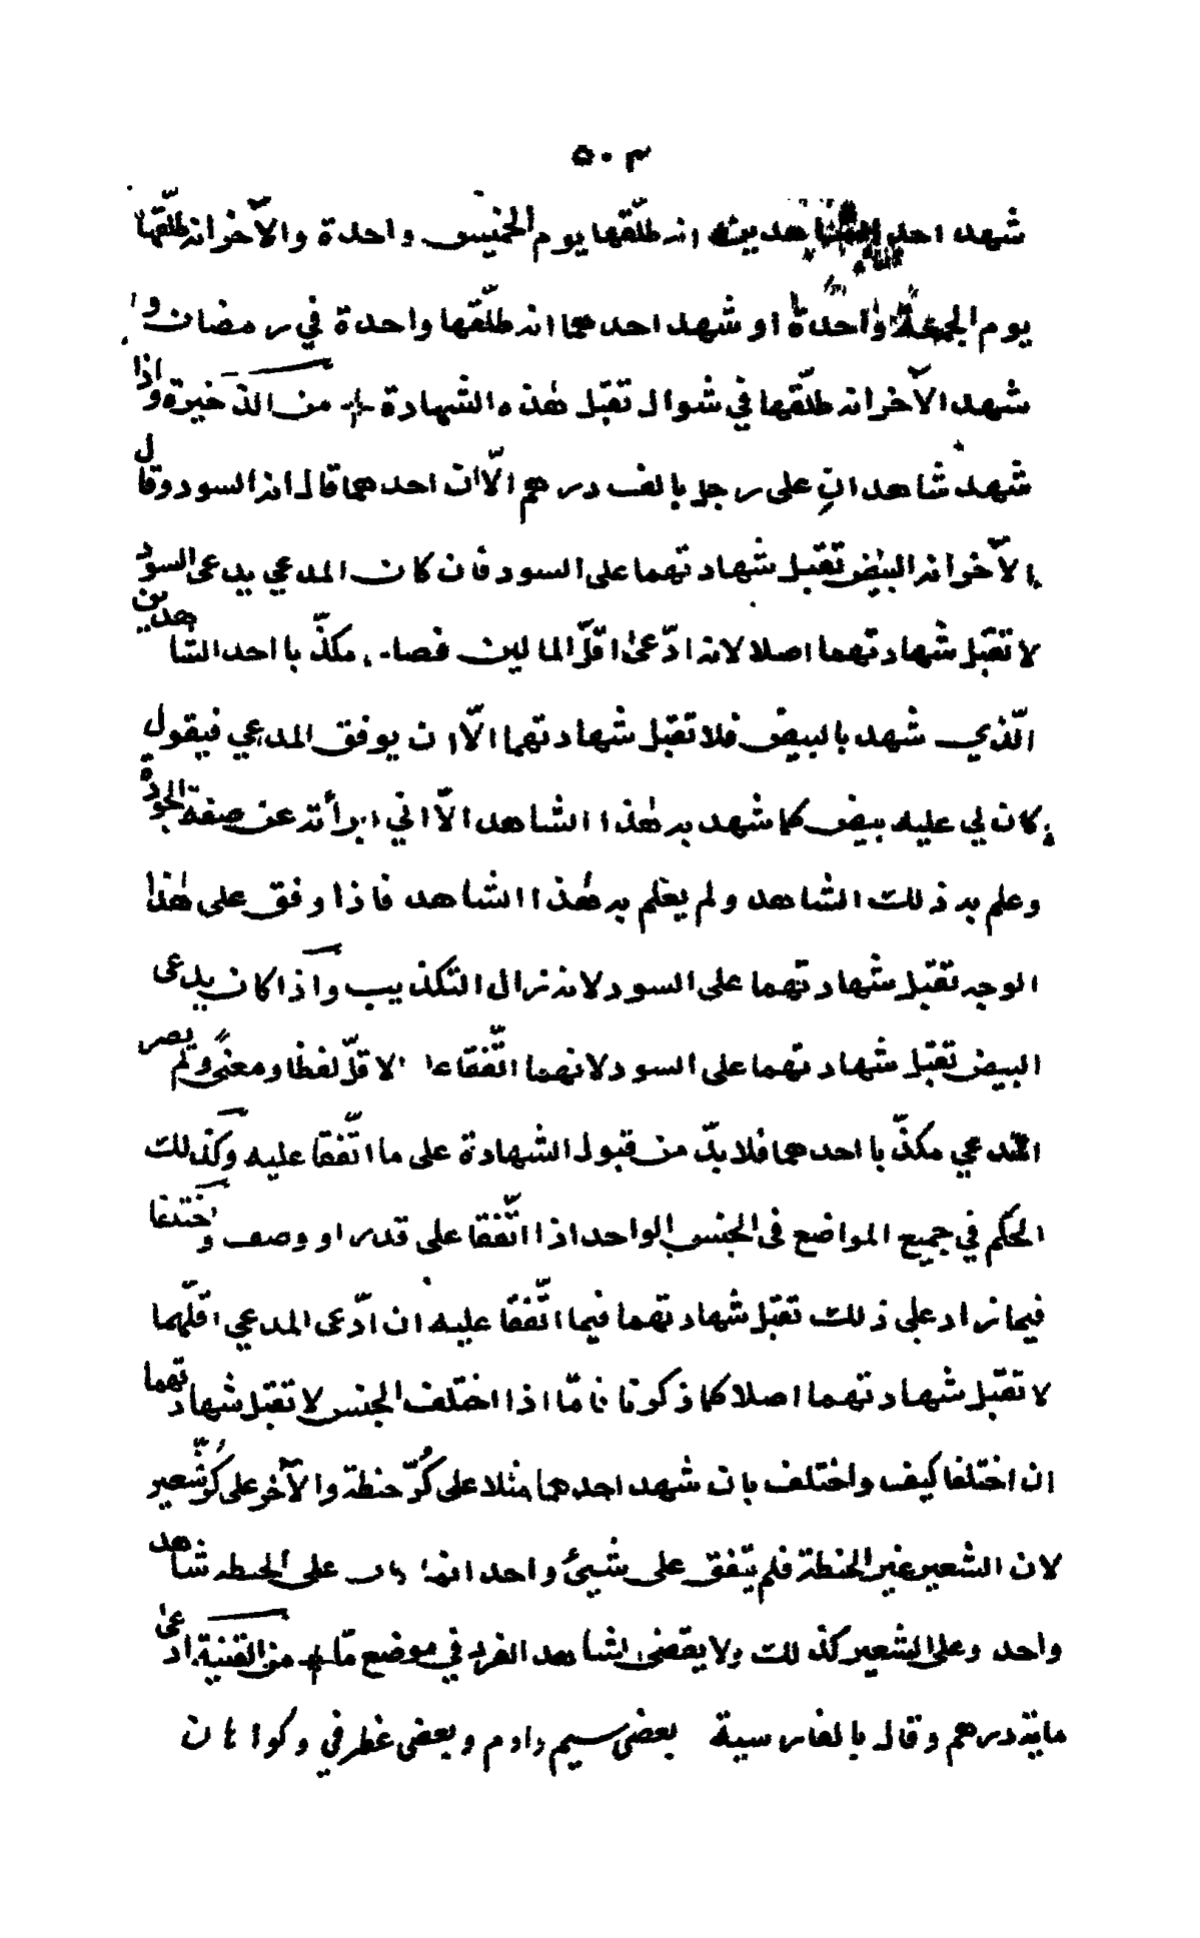 ٥٠٣
شهد احد الشاهدين انه طلّقها يوم الخميس واحدة والآخر انه طلّقها
يوم الجمعة واحدة او شهد احدهما انه طلّقها واحدة في رمضان و
شهد الآخر انه طلّقها في شوال تقبل هذه الشهادة من الذخيرة واذا
شهد شاهدانِ على رجل بالف درهم الّا ان احدهما قال انه السود وقال
الآخر انه البيض تقبل شهادتهما على السود فان كان المدعي يدعى السود
لا تقبل شهادتهما اصلا لانه ادّعى اقلّ المالين فصار مكذّبا احد الشاهدين
الّذي شهد بالبيض فلا تقبل شهادتهما الّا ان يوفق المدعي فيقول
كان لي عليه بيض كما شهد به هذا الشاهد الّا اني ابرأته عن صفة الجودة
وعلم به ذلك الشاهد ولم يعلم به هذا الشاهد فاذا وفق على هذا
الوجه تقبل شهادتهما على السود لانه زال التكذيب واذا كان يدعى
البيض تقبل شهادتهما على السود لانهما اتّفقا على الاقلّ لفظا ومعنًى ولم يصر
المدعي مكذّبا احدهما فلا بدّ من قبول الشهادة على ما اتّفقا عليه وكذلك
الحكم في جميع المواضع فى الجنس الواحد اذا اتّفقا على قدر او وصف واختلفا
فيما زاد على ذلك تقبل شهادتهما فيما اتّفقا عليه ان ادّعى المدعي اقلّهما
لا تقبل شهادتهما اصلا كما ذكرنا فامّا اذا اختلف الجنس لا تقبل شهادتهما
ان اختلفا كيف واختلف بان شهد احدهما مثلا على كُرّ حنطة والآخر على كُرّ شعير
لان الشعير غير الحنطة فلم يتّفق على شيئ واحد انما على الحنطه شاهد
واحد وعلى الشعير كذلك ولا يقضى لشاهد الفرد في موضع مّا من القنية ادعى
مائة درهم وقال بالفارسية بعضى سيم دادم وبعضى غطرفي وكواهان